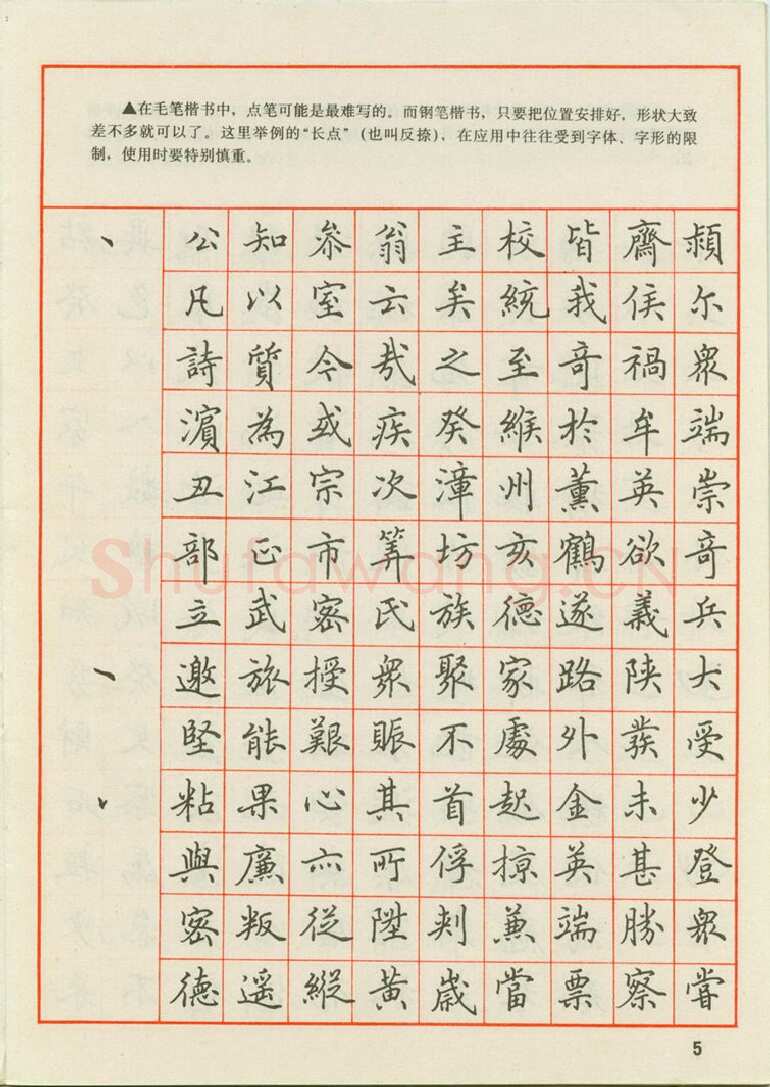 ▲在毛笔楷书中，点笔可能是最难写的。而钢笔楷书，只要把位置安排好，形状大致
差不多就可以了。这里举例的“长点”（也叫反捺），在应用中往往受到字体、字形的限
制，使用时要特别慎重。
丶 公 知 叅 翁 主 校 皆 齋 頻
凡 以 室 云 矣 統 我 侯 尔
詩 質 今 哉 之 至 奇 禍 衆
濱 為 或 疾 癸 維 於 牟 端
丑 江 宗 次 漳 州 薰 英 崇
部 正 市 筭 坊 亥 鶴 欲 奇
立 武 密 氏 族 德 遂 義 兵
邀 旅 授 衆 聚 家 路 陕 大
堅 能 艱 賬 不 處 外 發 受
粘 果 心 其 首 起 金 未 少
與 廉 亦 所 俘 掠 英 甚 登
密 叛 從 陞 刾 兼 端 勝 衆
德 遥 縱 黄 歲 當 票 察 嘗
Shufawang.CN
5